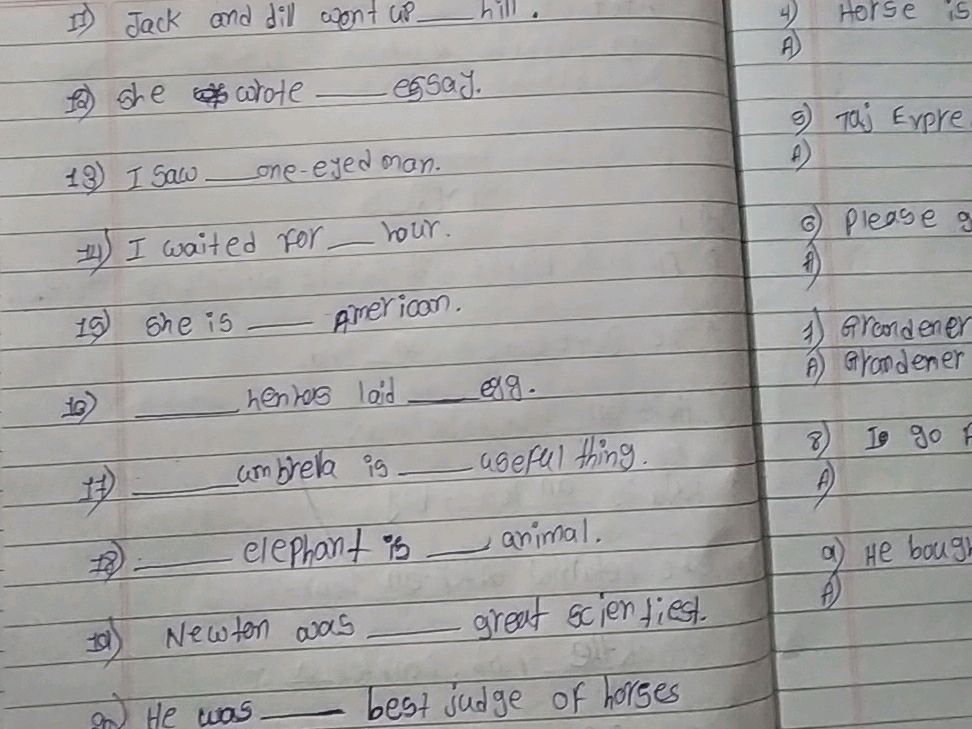 11) Jack and dill went up ___ hill.
12) She wrote ___ essay.
13) I saw ___ one-eyed man.
14) I waited for ___ hour.
15) She is ___ American.
16) ___ hen has laid ___ egg.
17) ___ umbrela is ___ useful thing.
18) ___ elephant is ___ animal.
19) Newton was ___ great scientiest.
20) He was ___ best judge of horses
4) Horse is
A)
5) Taj Expre
A)
6) Please g
A)
7) Grandener
A) Grandener
8) Is go
A)
9) He bough
A)